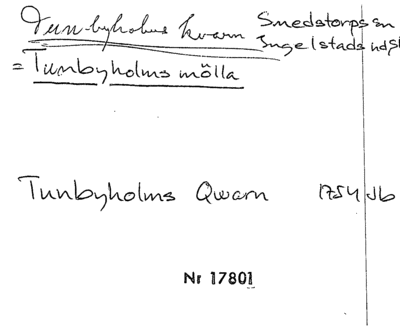 Tunbyholms kvarn Smedstorps sn
Ingelstads hd Sk
= Tunbyholms mölla
Tunbyholms Qwarn 1754 Jb
Nr 17801